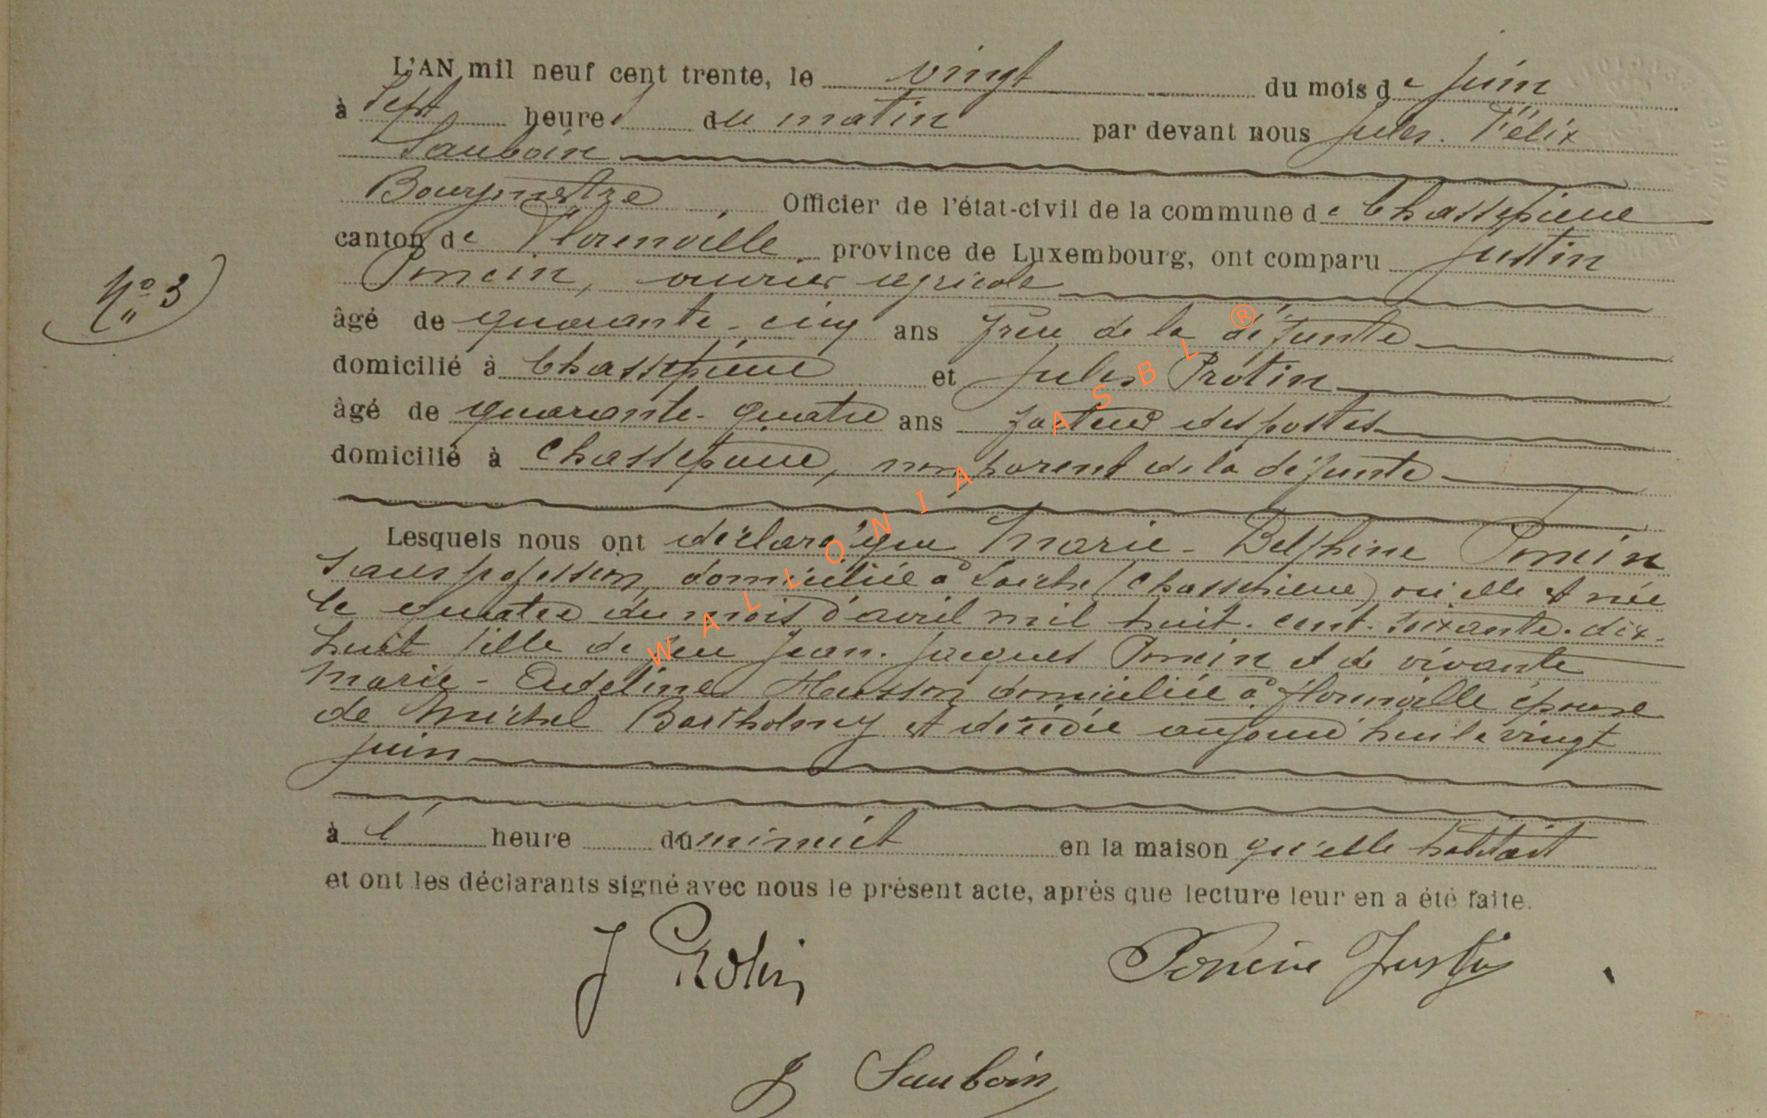 L'AN mil neuf cent trente, le vingt du mois de juin
à sept heures du matin par devant nous Jules. Félix
Sauboin
Bourgmestre Officier de l'état-civil de la commune de Chassepierre
canton de Florenville province de Luxembourg, ont comparu Justin
Poncin, ouvrier agricole
âgé de quarante-cinq ans frère de la défunte
domicilié à Chassepierre et Jules Protin
âgé de quarante-quatre ans facteur des postes
domicilié à Chassepierre, non parent de la défunte
Lesquels nous ont déclaré que Marie-Delphine Poncin
sans profession, domiciliée à Laiche (Chassepierre) où elle est née
le quatre du mois d'avril mil huit-cent-soixante-dix-
huit fille de feu Jean-Jacques Poncin et de vivante
Marie-Adeline Husson domiciliée à Florenville épouse
de Michel Bartholmy est décédée aujourd'hui le vingt
juin
à l' heure du minuit en la maison qu'elle habitait
et ont les déclarants signé avec nous le présent acte, après que lecture leur en a été faite.
N° 3
J Protin
Poncin Justin
J Sauboin
WALLONIA ASBL ®